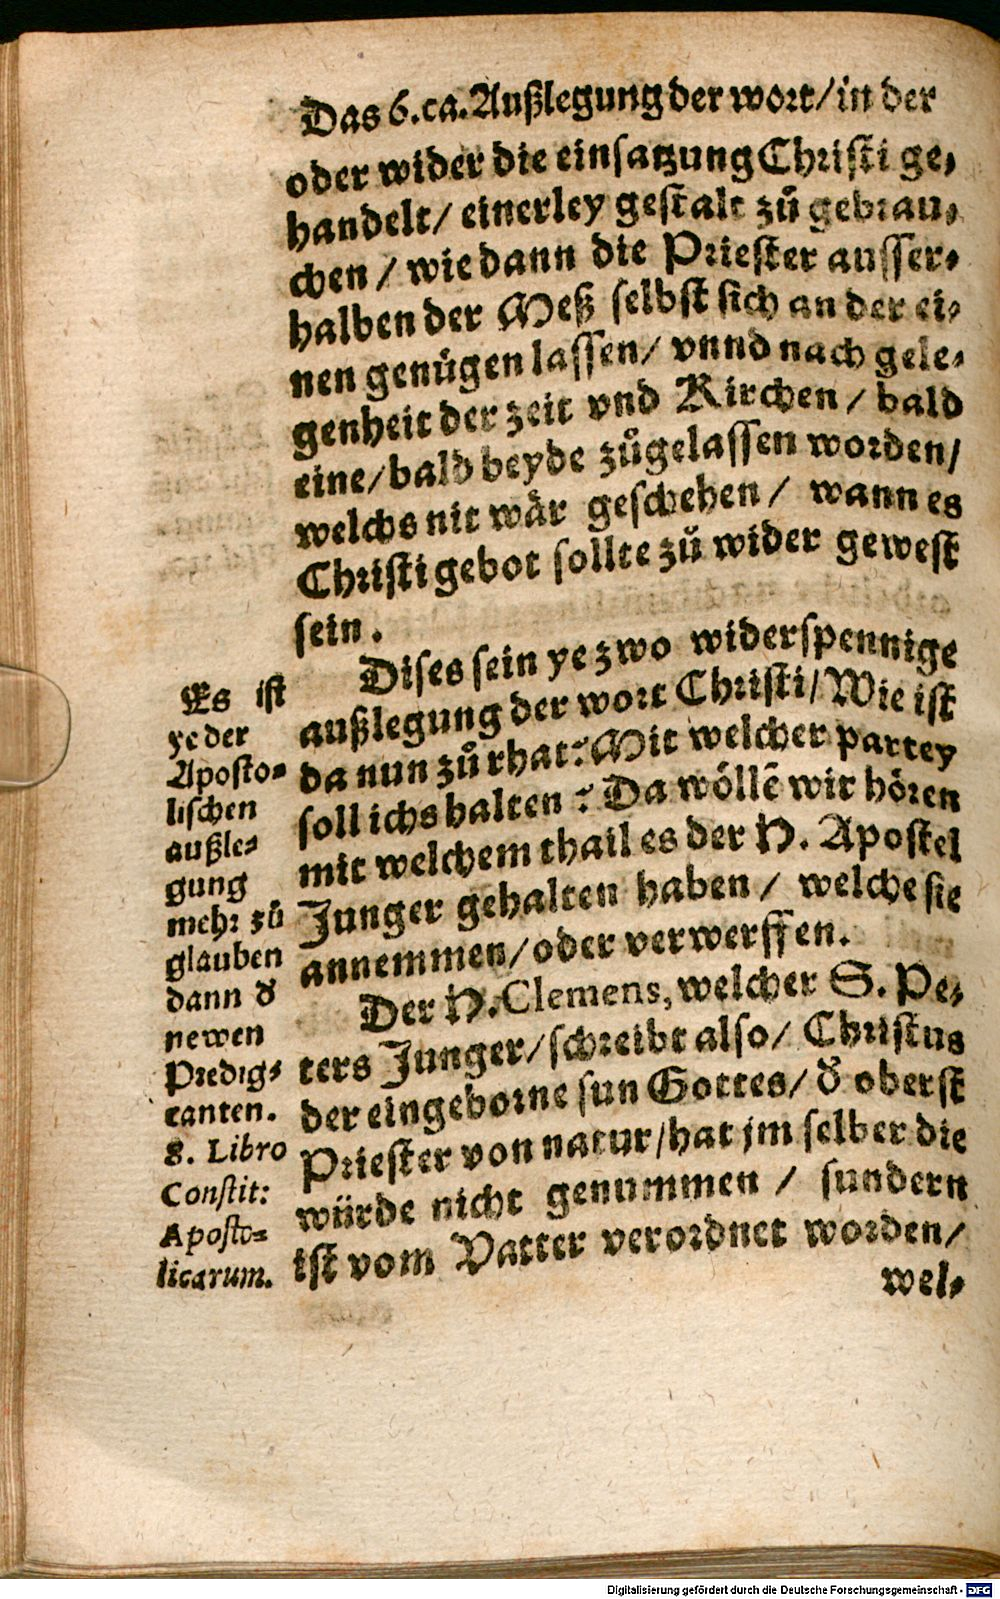 Das 6. ca. Außlegung der wort/ in der
oder wider die einsatzung Christi ge-
handelt/ einerley gestalt zů gebrau-
chen/ wie dann die Priester ausser-
halben der Meß selbst sich an der ei-
nen genůgen lassen/ vnnd nach gele-
genheit der zeit vnd Kirchen/ bald
eine/ bald beyde zůgelassen worden/
welchs nit wår geschehen/ wann es
Christi gebot sollte zů wider gewest
sein.
Dises sein ye zwo widerspennige
außlegung der wort Christi/ Wie ist
da nun zů rhat? Mit welcher partey
soll ichs halten? Da wöllē wir hören
mit welchem thail es der H. Apostel
Junger gehalten haben/ welche sie
annemmen/ oder verwerffen.
Der H. Clemens, welcher S. Pe-
ters Junger/ schreibt also/ Christus
der eingeborne sun Gottes/ d' oberst
Priester von natur/ hat jm selber die
würde nicht genummen/ sundern
ist vom Vatter verordnet worden/
wel-
Es ist
ye der
Aposto-
lischen
außle-
gung
mehr zů
glauben
dann d'
newen
Predig-
canten.
8. Libro
Constit:
Aposto-
licarum.
Digitalisierung gefördert durch die Deutsche Forschungsgemeinschaft - DFG